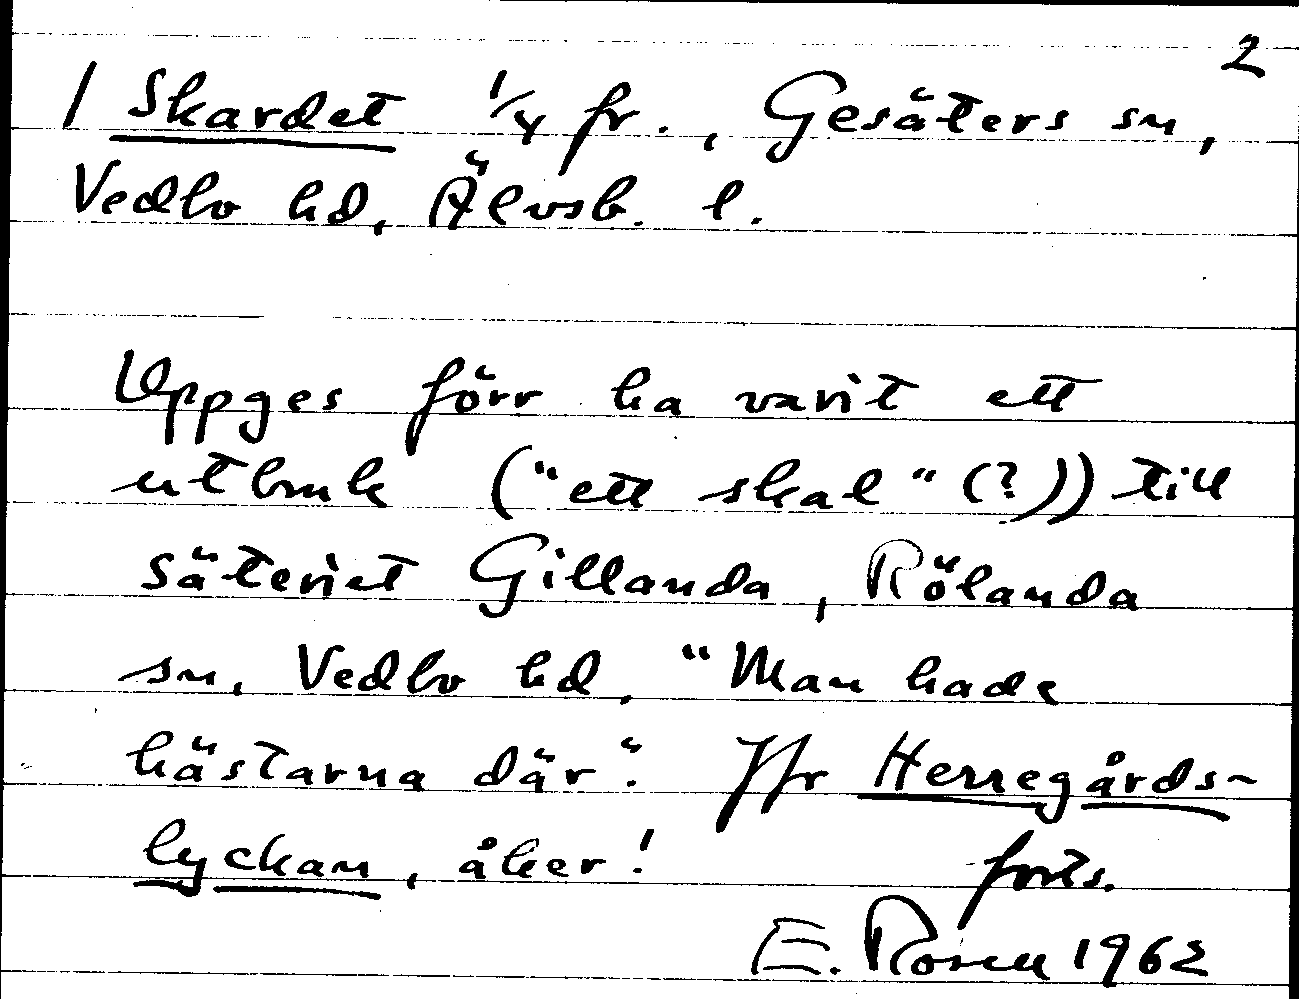 2
/ Skardet 1/4 fr., Gesäters sn,
Vedbo hd, Älvsb. l.
Uppges förr ha varit ett
utbruk ("ett skal" (?)) till
säteriet Gillanda, Rölanda
sn, Vedbo hd, "Man hade
hästarna där". Jfr Herregårds-
lyckan, åker!
forts.
E. Rosen 1962